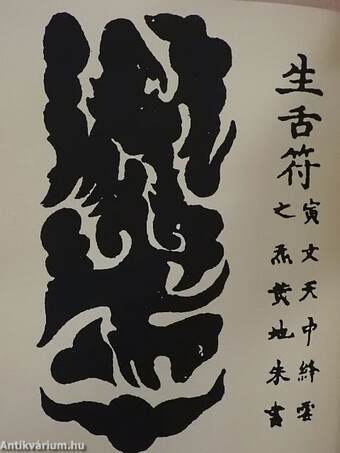 生舌符
寅文天中絳雲
之炁黄地朱書
Antikvárium.hu